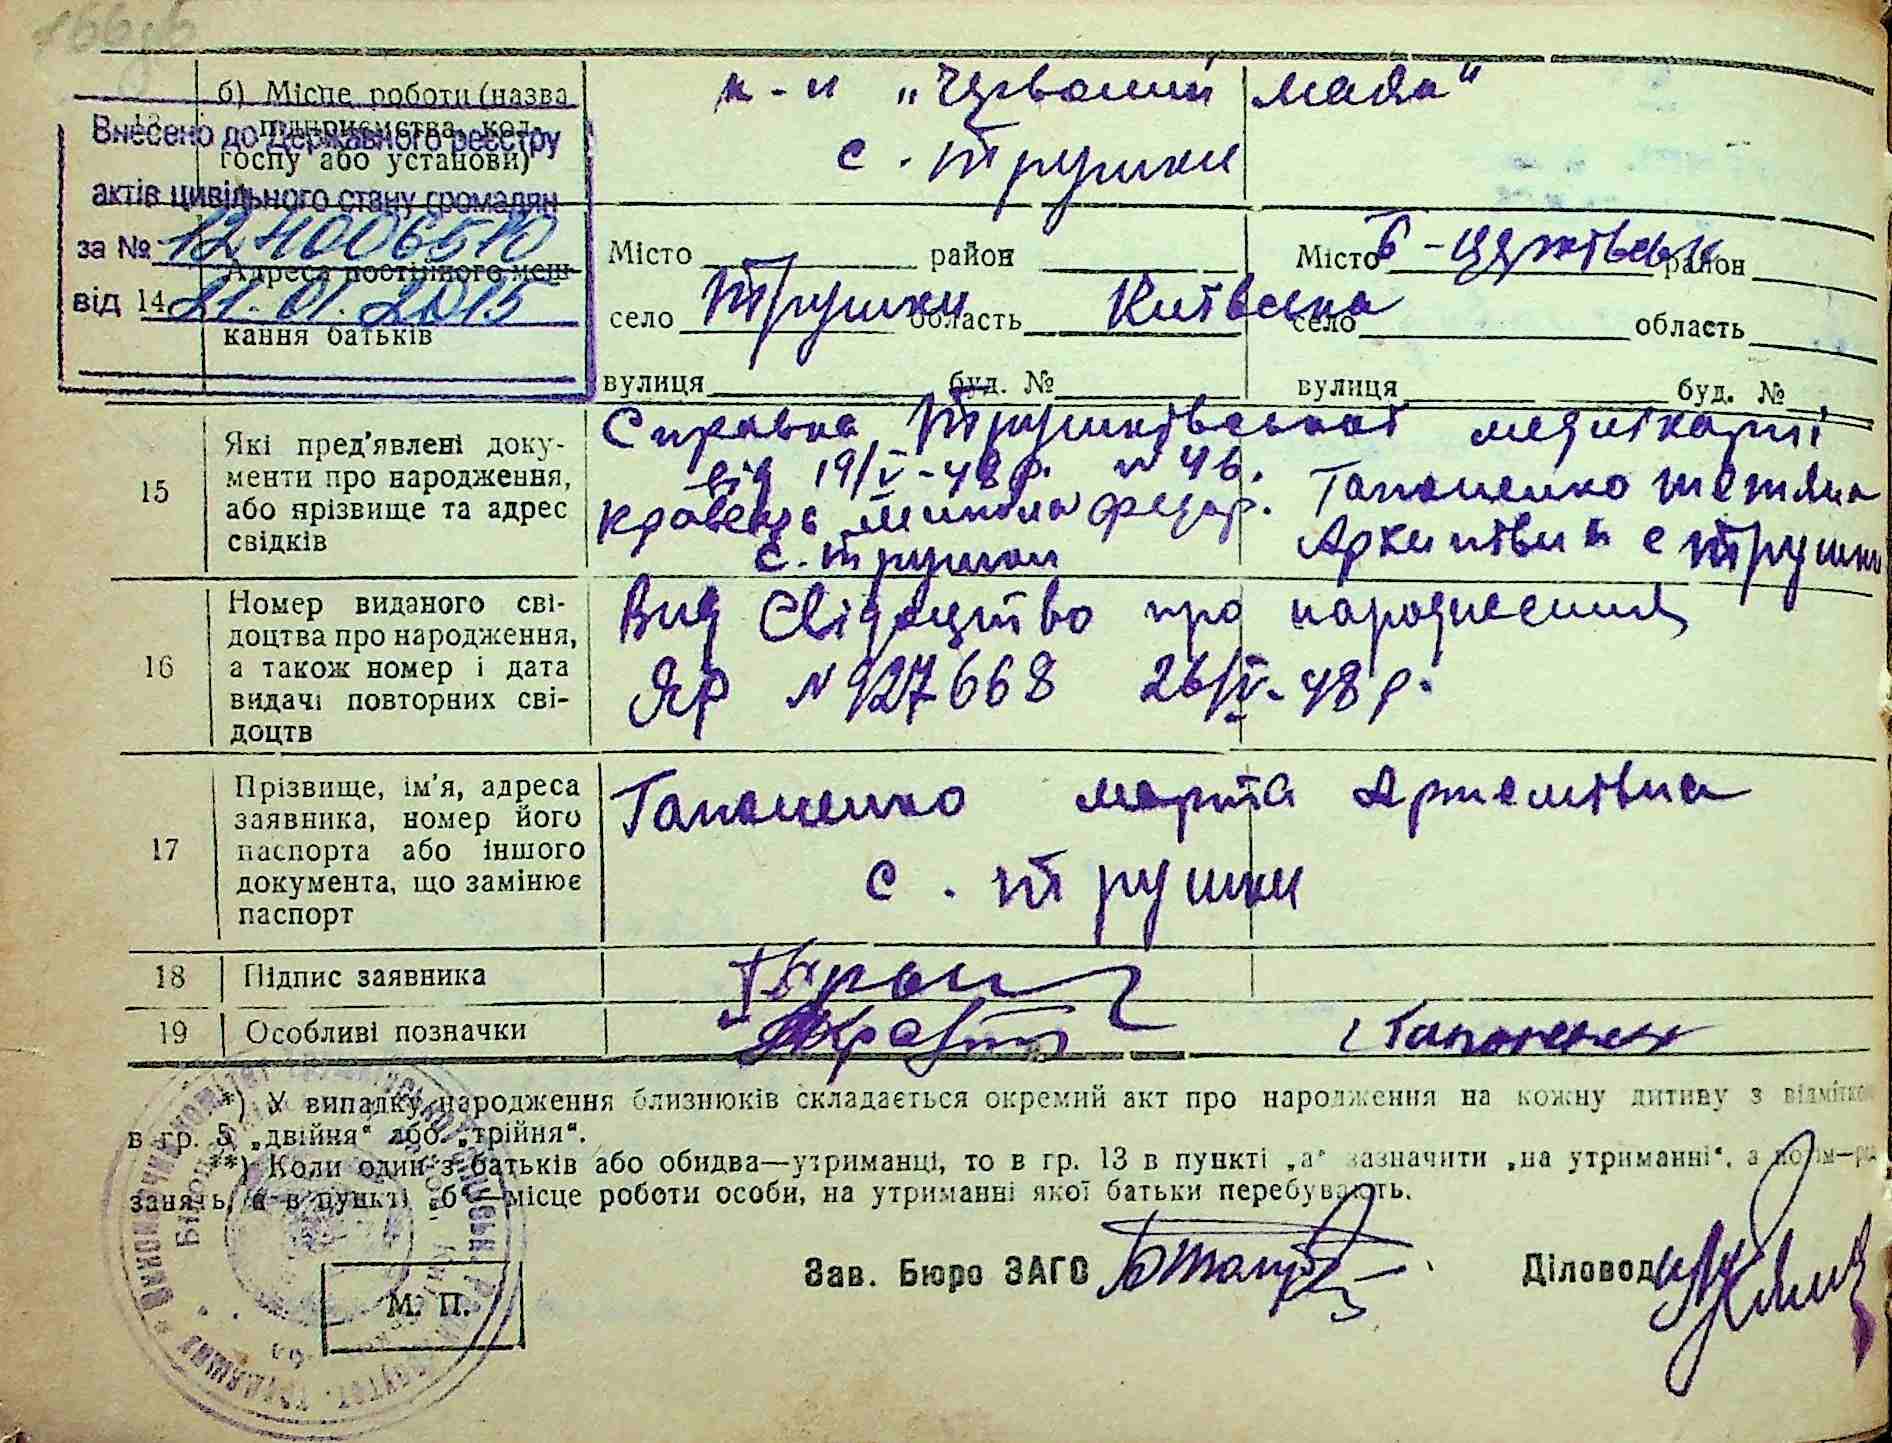 166зв
б) Місце роботи (назва
13 підприємства, кол-
госпу або установи)
к-п „Червоний маяк"
с. Трушки
Внесено до Державного реєстру
актів цивільного стану громадян
за №
від 21.01.2015
14 Адреса постійного меш-
кання батьків
Місто район
село Трушки область Київська
вулиця буд. №
Місто Б-Церківськ район
село область
вулиця буд. №
15 Які пред'явлені доку-
менти про народження,
або прізвище та адрес
свідків
Справка Трушківської
від 19/V-48 р. № 46.
микола федор. Тапоненко тетяна
с. Трушки с Трушки
16 Номер виданого сві-
доцтва про народження,
а також номер і дата
видачі повторних сві-
доцтв
Вид Свідоцтво про народження
ЯР № 927668 26/V-48 р.
17 Прізвище, ім'я, адреса
заявника, номер його
паспорта або іншого
документа, що замінює
паспорт
Тапоненко марта Артемівна
с. Трушки
18 Підпис заявника
19 Особливі позначки
*) У випадку народження близнюків складається окремий акт про народження на кожну дитину з відміткою
в гр. 5 „двійня" або „трійня".
**) Коли один з батьків або обидва—утриманці, то в гр. 13 в пункті „а" зазначити „на утриманні", а потім—рід
занять, а в пункті „б"—місце роботи особи, на утриманні якої батьки перебувають.
М. П.
Зав. Бюро ЗАГС
Діловод